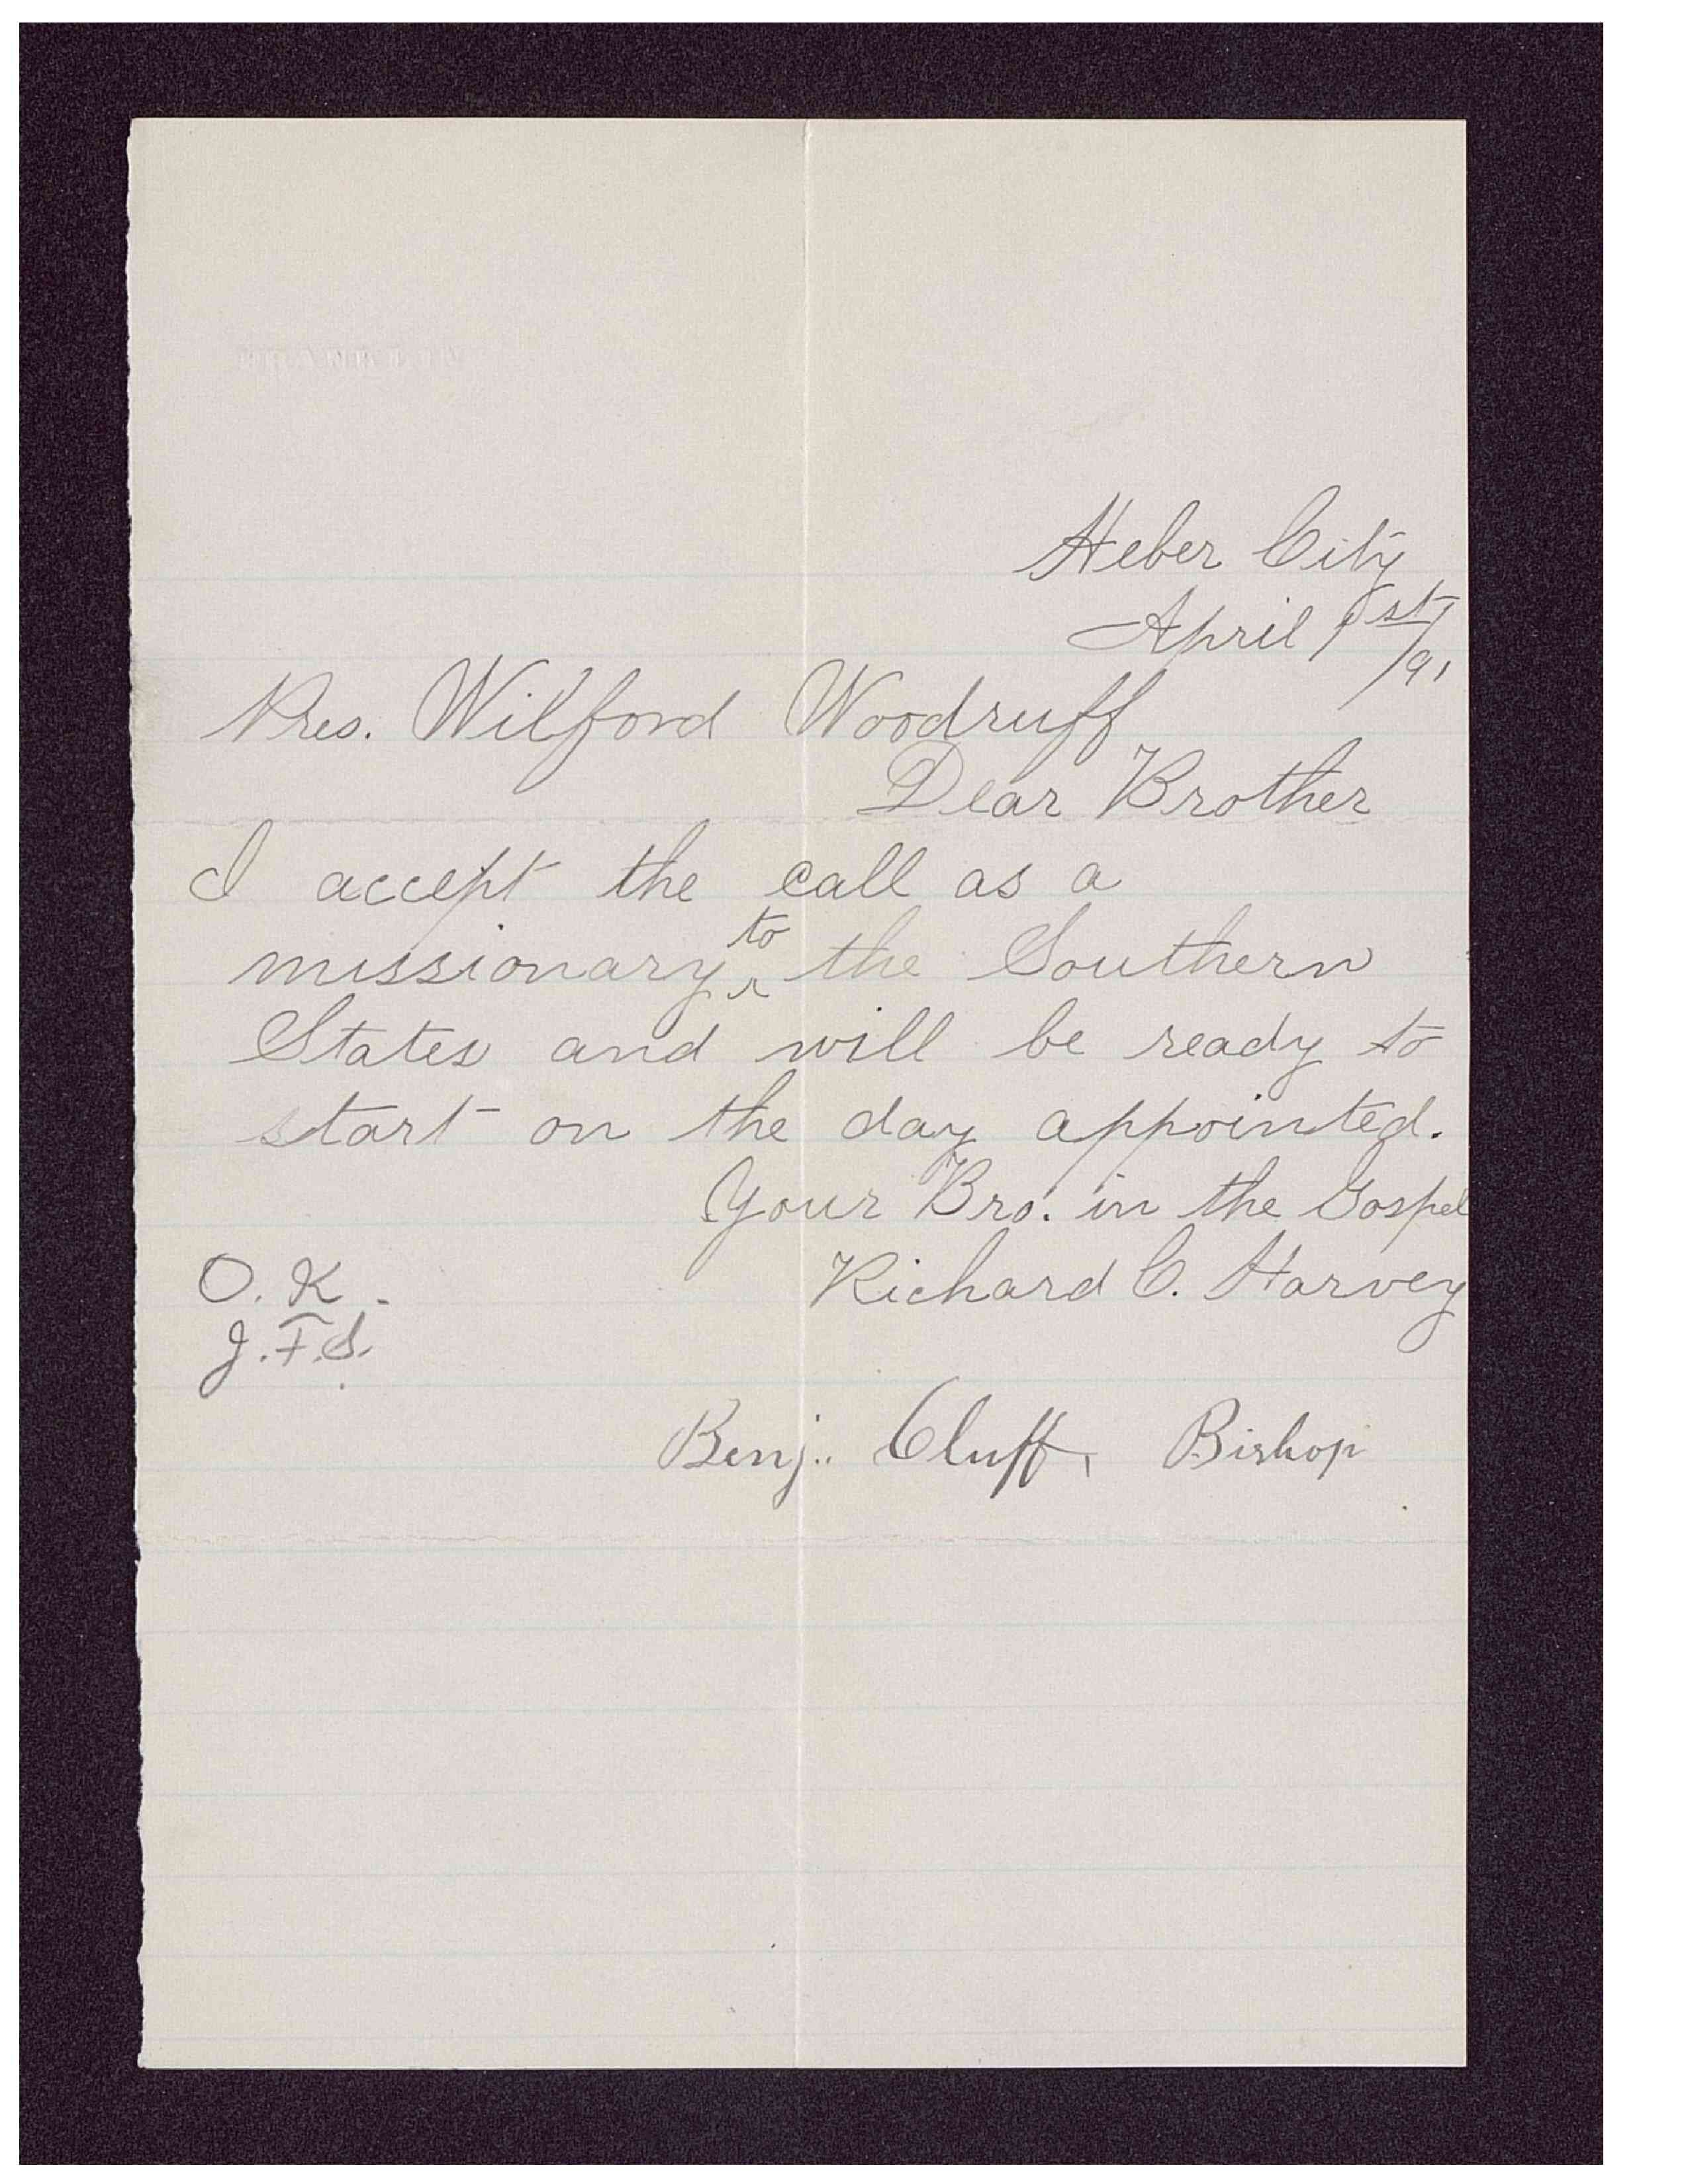 Heber City
April 1st/91
Pres. Wilford Woodruff
Dear Brother
I accept the call as a
missionary to the Southern
States and will be ready to
start on the day appointed.
Your Bro. in the Gospel
Richard C. Harvey
O.K.
J.F.S.
Benj. Cluff, Bishop